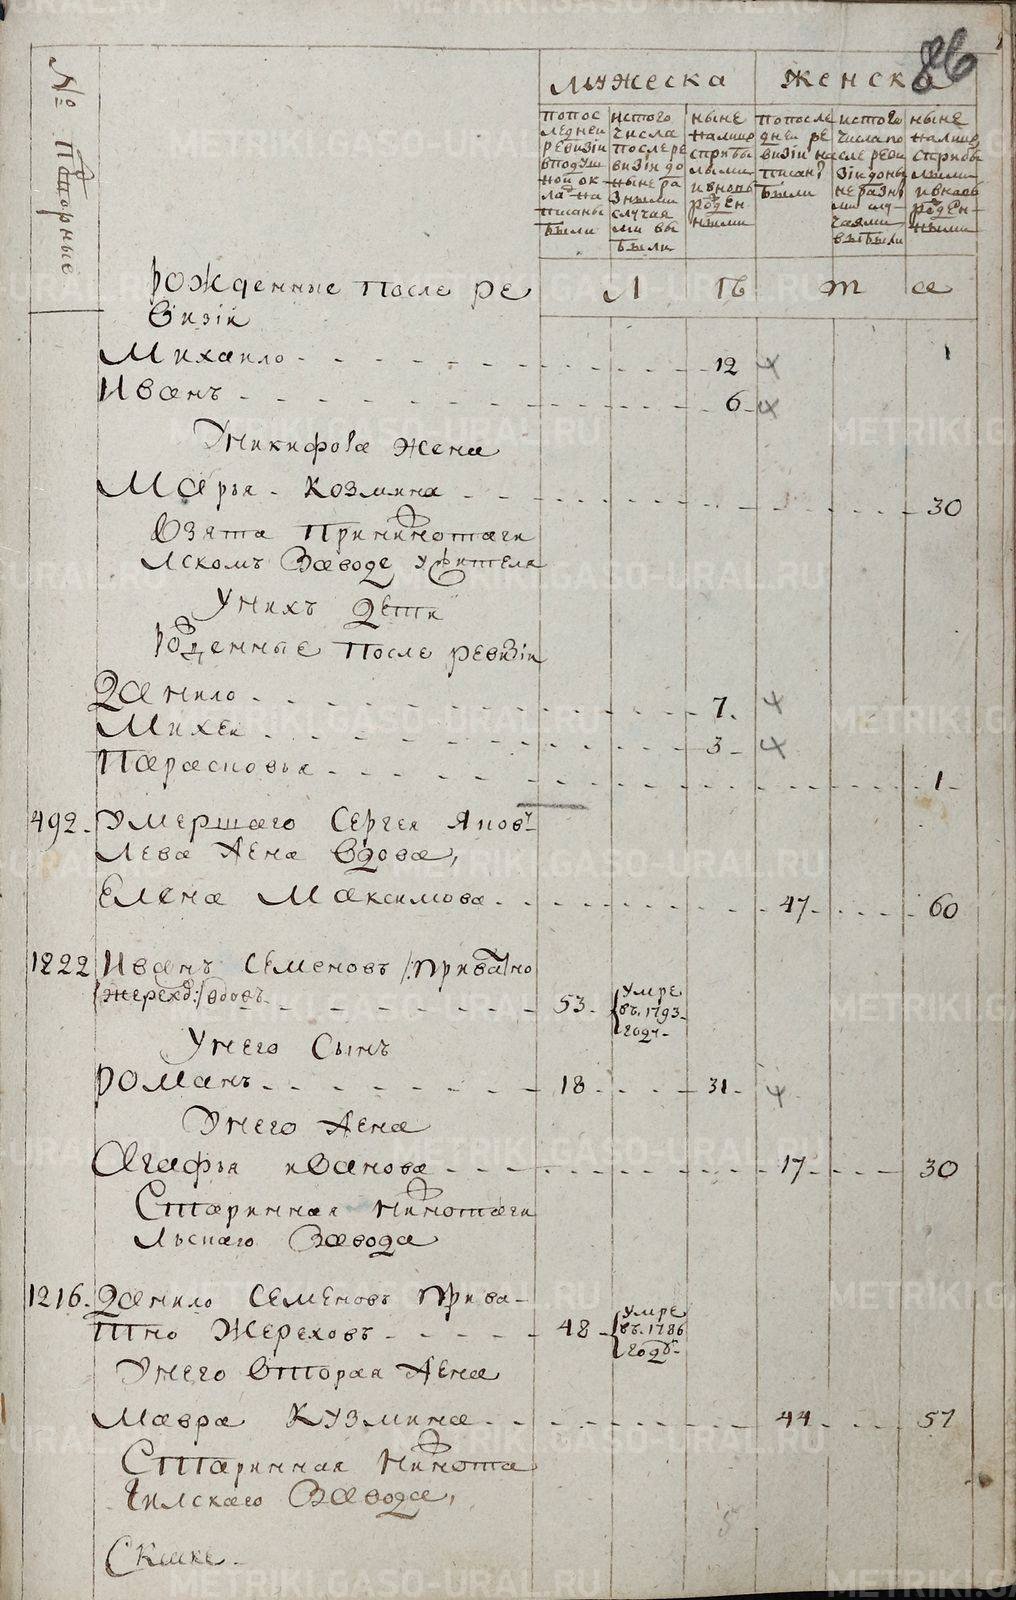 86
№ Пашпорные
мужеска
женска
попос
ледней
ревизіи
в подуш
ной ок
ладъ на
писаны
были
ис того
числа
после ре
визіи до
ныне ра
зными
случая
ми вы
были
ныне
на лицо
с прибы
лыми
и вновь
рожден
ными
по после
дней ре
визіи на
писан?
были
ис того
числа по
сле реви
зіи доны
не разны
ми слу-
чаями
выбыли
ныне
на лицо
с прибы
лыми
и вновь
рожден-
ными
л ѣ т а
Рожденные после ре
визіи
Михаило - - - 12
Иванъ - - - 6
У Никифора жена
Марья Козмина - - - 30
Взята при Нижнотаги
лском Заводе у жителя
У них дети
Рожденные после ревизіи
Данило - - - 7
Михей - - - 3
Парасковья - - - 1
492. Умершаго Сергея Яков
лева жена вдова,
Елена Максимова - - - 47 - - - 60
1222 Иванъ Семеновъ /:приватно
жерехов:/ вдовъ - - - 53 - Умре
въ 1793
году
У него Сынъ
Романъ - - - 18 - - - 31
У него жена
Агафья иванова - - - 17 - - - 30
Старинная Нижнотаги
льскаго Завода
1216. Данило Семеновъ прива-
тно Жереховъ - - - 48 - Умре
въ 1786
году
У него вторая жена
Мавра Кузмина - - - 44 - - - 57
Старинная Нижнота
гилскаго Завода,
METRIKI.GASO-URAL.RU